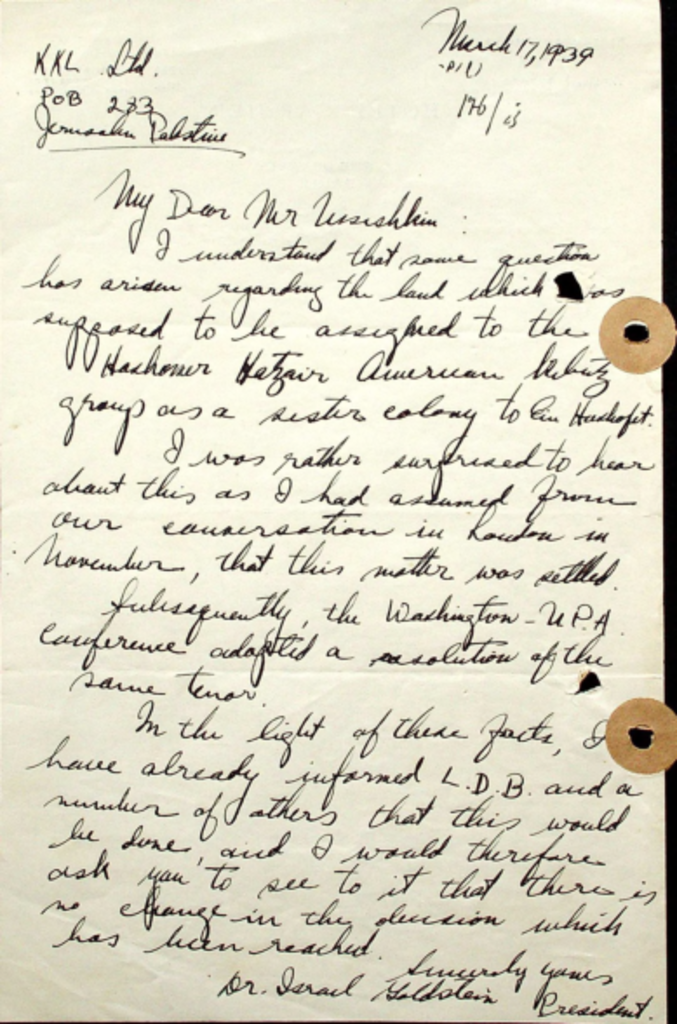 March 17, 1939
KKL Ltd.
POB 233
Jerusalem Palestine
176/is
My Dear Mr Ussishkin :
I understand that some question
has arisen regarding the land which was
supposed to be assigned to the
Hashomer Hatzair American Kibutz
group as a sister colony to Ein Hashofet.
I was rather surprised to hear
about this as I had assumed from
our conversation in London in
November, that this matter was settled.
Subsequently, the Washington - U.P.A.
Conference adopted a resolution of the
same tenor.
In the light of these facts, I
have already informed L.D.B. and a
number of others that this would
be done, and I would therefore
ask you to see to it that there is
no change in the decision which
has been reached.
Sincerely yours
Dr. Israel Goldstein President.